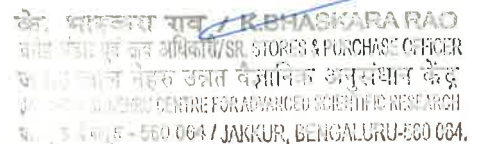 के. भास्करा राव / K.BHASKARA RAO
वरिष्ठ भंडार एवं क्रय अधिकारी/SR. STORES & PURCHASE OFFICER
लाल नेहरू उन्नत वैज्ञानिक अनुसंधान केंद्र
NEHRU CENTRE FOR ADVANCED SCIENTIFIC RESEARCH
- 560 064 / JAKKUR, BENGALURU-560 064.